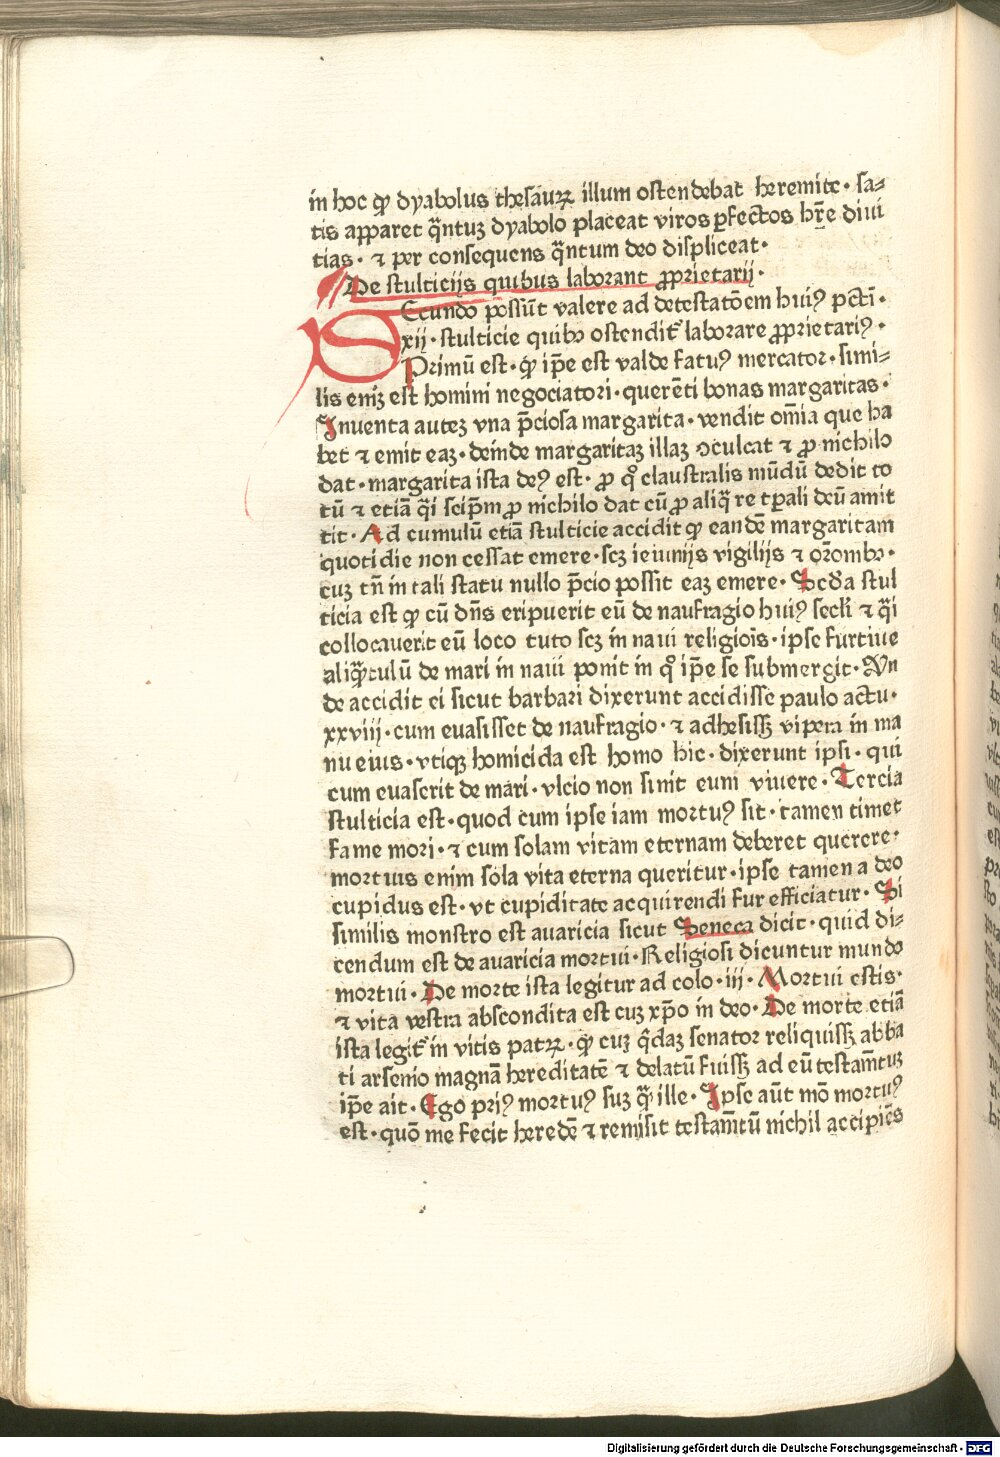 in hoc ꝙ dyabolus thesauꝝ illum ostendebat heremite · sa⸗
tis apparet q̃ntuꝫ dyabolo placeat viros ꝑfectos hr̃e diui
tias · ⁊ per consequens q̃ntum deo displiceat ·
De stulticijs quibus laborant ꝓprietarij ·
SEcundo possũt valere ad detestatõem huiꝰ pcti̅ ·
xij · stulticie quibꝰ ostendit̃ laborare ꝓprietariꝰ ·
Primũ est · ꝙ ip̃e est valde fatuꝰ mercator · simi⸗
lis eniꝫ est homini negociatori · querẽti bonas margaritas ·
Inuenta auteꝫ vna p̃ciosa margarita · vendit om̃ia que ha
bet ⁊ emit eaꝫ · deinde margaritaꝫ illaꝫ ꝯculcat ⁊ ꝓ nichilo
dat · margarita ista deꝰ est · ꝓ qͦ claustralis mũdũ dedit to
tũ ⁊ etiã q̃i seip̃m ꝓ nichilo dat cũ ꝓ aliq̃ re tꝑali deũ amit
tit · Ad cumulũ etiã stulticie accidit ꝙ eandẽ margaritam
quotidie non cessat emere · scꝫ ieiunijs vigilijs ⁊ or̃onibꝰ ·
cuꝫ tñ in tali statu nullo p̃cio possit eaꝫ emere · Scd̃a stul
ticia est ꝙ cũ dñs eripuerit eũ de naufragio huiꝰ secli̅ ⁊ q̃i
collocauerit eũ loco tuto scꝫ in naui religiõis · ipse furtiue
aliq̃ntulũ de mari in naui ponit in qͦ ip̃e se submergit · Vn
de accidit ei sicut barbari dixerunt accidisse paulo actu ·
xxviii · cum euasisset de naufragio · ⁊ adhesissꝫ vipera in ma
nu eius · vtiqꝫ homicida est homo hic · dixerunt ipsi · qui
cum euaserit de mari · vlcio non sinit eum viuere · Tercia
stulticia est · quod cum ipse iam mortuꝰ sit · tamen timet
fame mori · ⁊ cum solam vitam eternam deberet querere ·
mortuis enim sola vita eterna queritur · ipse tamen a deo
cupidus est · vt cupiditate acquirendi fur efficiatur · Si
similis monstro est auaricia sicut Seneca dicit · quid di⸗
cendum est de auaricia mortui · Religiosi dicuntur mundo
mortui · De morte ista legitur ad colo · iij · Mortui estis ·
⁊ vita vestra abscondita est cuꝫ xp̃o in deo · De morte etiã
ista legit̃ in vitis patꝝ · ꝙ cuꝫ q̃daꝫ senator reliquissꝫ abba
ti arsenio magnã hereditatẽ ⁊ delatũ fuissꝫ ad eũ testam̃tuꝫ
ip̃e ait · Ego priꝰ mortuꝰ suꝫ q̃ ille · Ipse aũt mõ mortuꝰ
est · quõ me fecit heredẽ ⁊ remisit testam̃tũ nichil accipiẽs
Digitalisierung gefördert durch die Deutsche Forschungsgemeinschaft - DFG